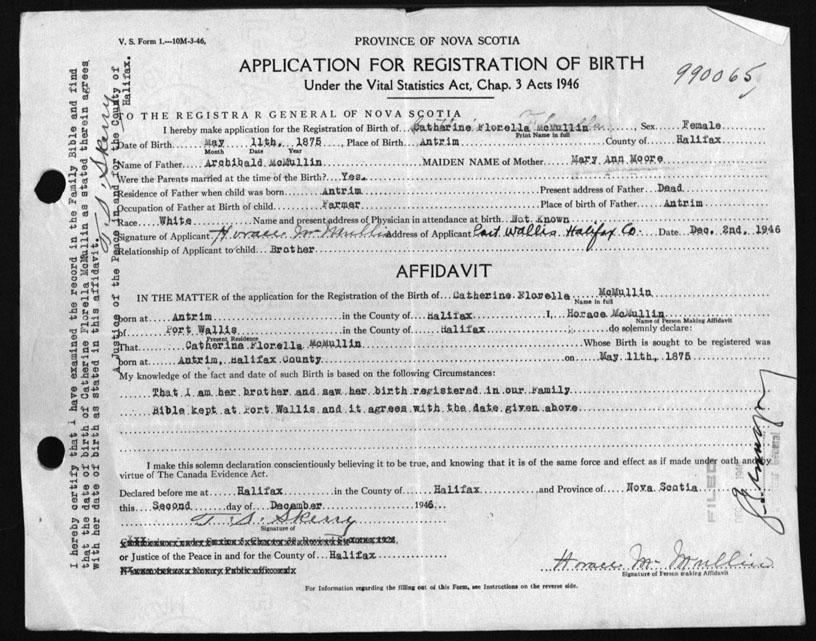 V. S. Form 1.—10M-3-46,
PROVINCE OF NOVA SCOTIA
APPLICATION FOR REGISTRATION OF BIRTH
990065
Under the Vital Statistics Act, Chap. 3 Acts 1946
TO THE REGISTRAR GENERAL OF NOVA SCOTIA
I hereby make application for the Registration of Birth of Catharine Florella McMullin Sex Female
Print Name in full
Date of Birth May 11th, 1875 Place of Birth Antrim County of Halifax
Month Date Year
Name of Father Archibald McMullin MAIDEN NAME of Mother Mary Ann Moore
Were the Parents married at the time of the Birth? Yes.
Residence of Father when child was born Antrim Present address of Father Dead
Occupation of Father at Birth of Child Farmer Place of birth of Father Antrim
Race White Name and present address of Physician in attendance at birth Not Known
Signature of Applicant Horace McMullin Address of Applicant Port Wallis Halifax Co. Date Dec. 2nd, 1946
Relationship of Applicant to child Brother
AFFIDAVIT
IN THE MATTER of the application for the Registration of the Birth of Catherine Florella McMullin
Name in full
born at Antrim in the County of Halifax I, Horace McMullin
Name of Person Making Affidavit
of Port Wallis in the County of Halifax do solemnly declare:
Present Residence
That Catherine Florella McMullin Whose Birth is sought to be registered was
born at Antrim, Halifax County on May 11th, 1875
My knowledge of the fact and date of such Birth is based on the following Circumstances:
That I am her brother and saw her birth registered in our Family
Bible kept at Port Wallis and it agrees with the date given above
I make this solemn declaration conscientiously believing it to be true, and knowing that it is of the same force and effect as if made under oath and by
virtue of The Canada Evidence Act.
Declared before me at Halifax in the County of Halifax and Province of Nova Scotia
this Second day of December 1946
T. S. Skerry
Signature of
or Justice of the Peace in and for the County of Halifax
Horace McMullin
Signature of Person making Affidavit
For Information regarding the filling out of this Form, see Instructions on the reverse side.
I hereby certify that I have examined the record in the Family Bible and find
that the date of birth of Catherine Florella McMullin as stated therein agrees
with her date of birth as stated in this affidavit.
T. S. Skerry
A Justice of the Peace in and for the County of
Halifax.
FILED